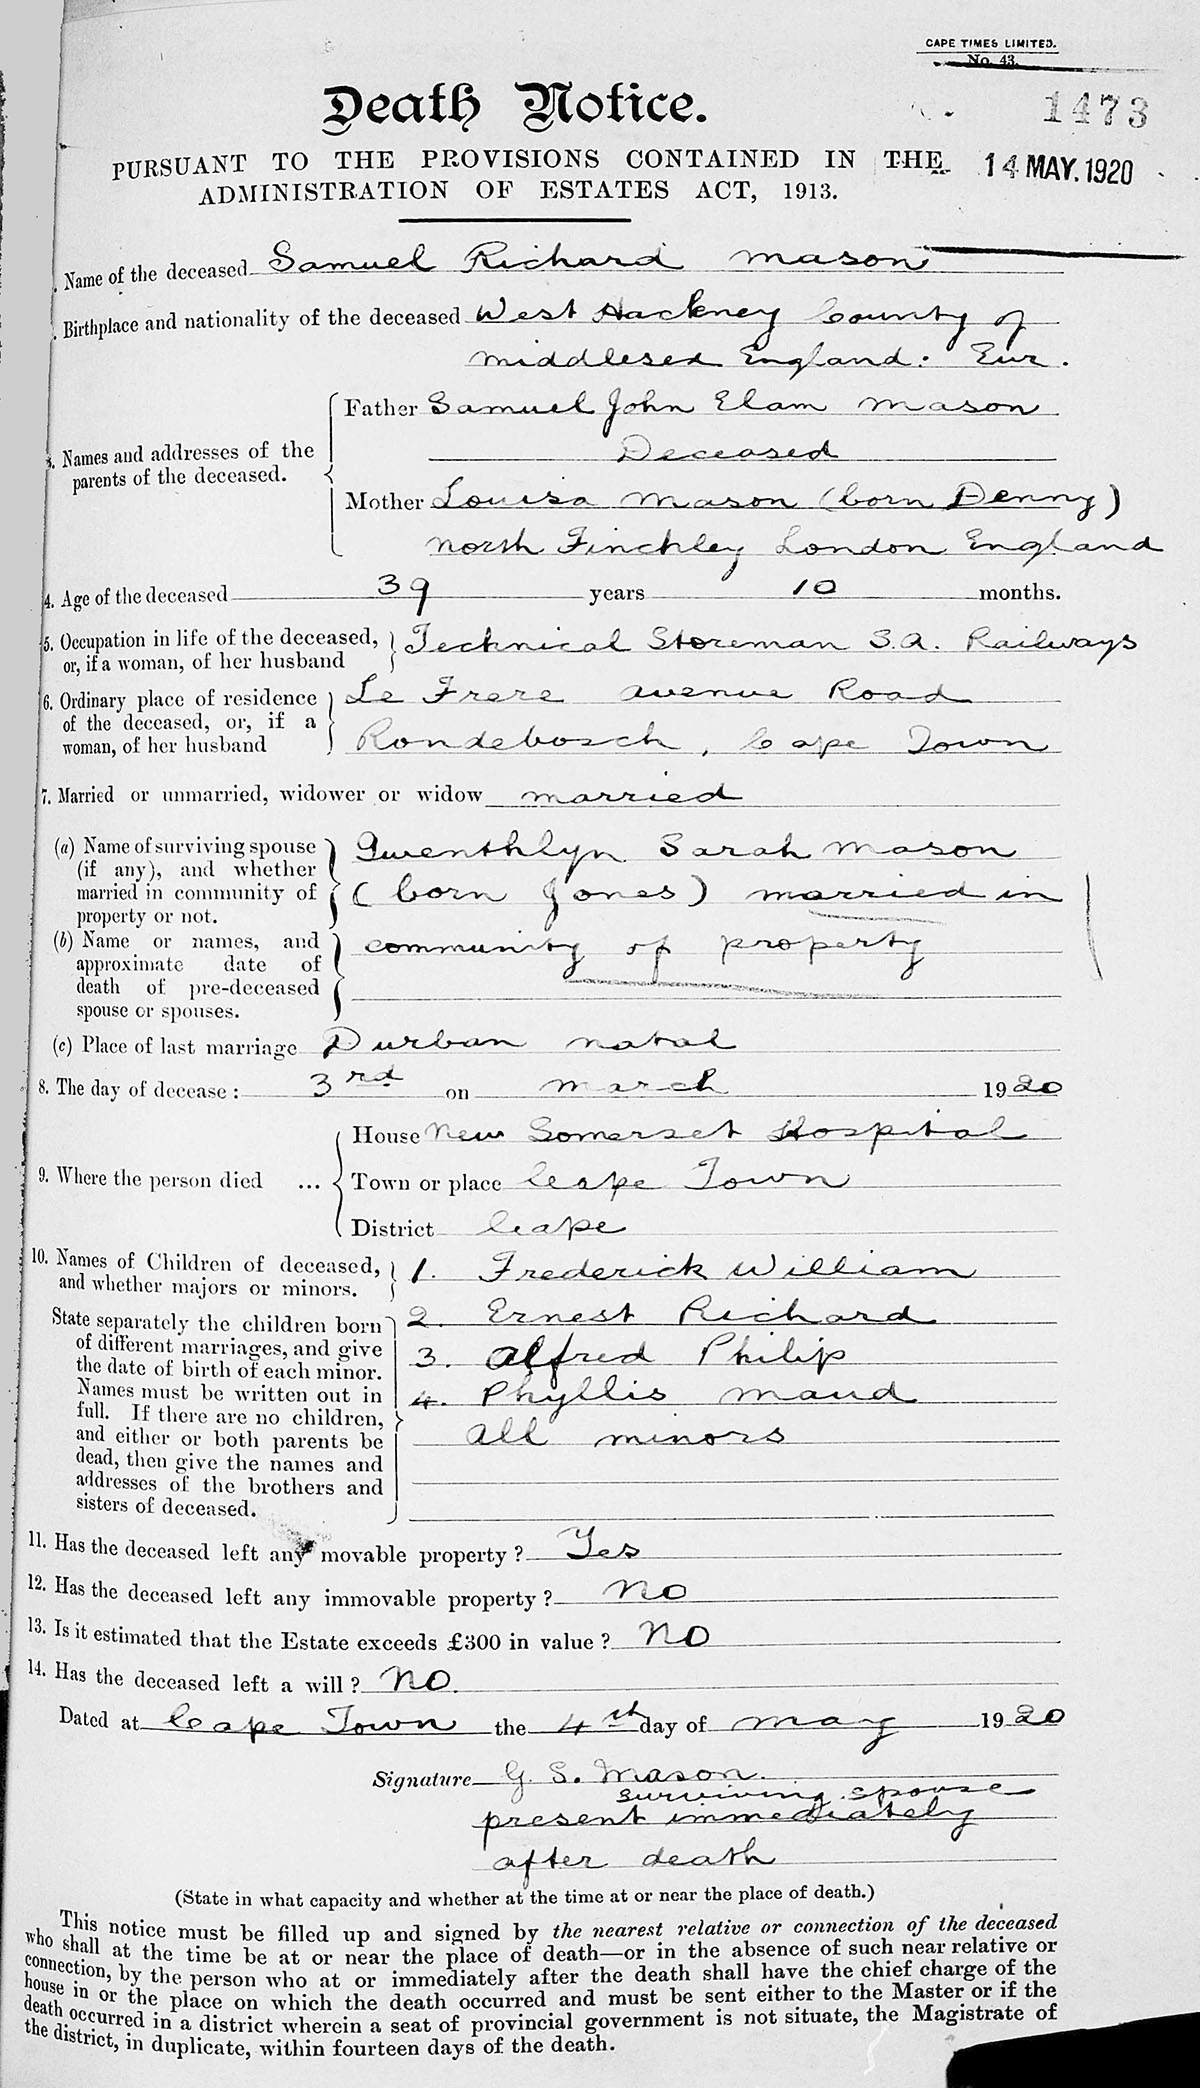 CAPE TIMES LIMITED.
No. 43.
Death Notice.
1473
PURSUANT TO THE PROVISIONS CONTAINED IN THE
14 MAY. 1920
ADMINISTRATION OF ESTATES ACT, 1913.
Name of the deceased Samuel Richard Mason
Birthplace and nationality of the deceased West Hackney County of
Middlesex England. Eur.
Father Samuel John Elam Mason
Deceased
3. Names and addresses of the
parents of the deceased.
Mother Louisa Mason (born Denny)
North Finchley London England
4. Age of the deceased 39 years 10 months.
5. Occupation in life of the deceased, Technical Storeman S.A. Railways
or, if a woman, of her husband
6. Ordinary place of residence Le Frere Avenue Road
of the deceased, or, if a
woman, of her husband Rondebosch, Cape Town
7. Married or unmarried, widower or widow married
(a) Name of surviving spouse Gwenthlyn Sarah Mason
(if any), and whether
married in community of (born Jones) married in
property or not.
(b) Name or names, and community of property
approximate date of
death of pre-deceased
spouse or spouses.
(c) Place of last marriage Durban Natal
8. The day of decease: 3rd on March 1920
House New Somerset Hospital
9. Where the person died ... Town or place Cape Town
District Cape
10. Names of Children of deceased, 1. Frederick William
and whether majors or minors.
State separately the children born 2. Ernest Richard
of different marriages, and give
the date of birth of each minor. 3. Alfred Philip
Names must be written out in 4. Phyllis Maud
full. If there are no children,
and either or both parents be All minors
dead, then give the names and
addresses of the brothers and
sisters of deceased.
11. Has the deceased left any movable property? Yes
12. Has the deceased left any immovable property? No
13. Is it estimated that the Estate exceeds £300 in value? No
14. Has the deceased left a will? No.
Dated at Cape Town the 4th day of May 1920
Signature G. S. Mason.
surviving spouse
present immediately
after death
(State in what capacity and whether at the time at or near the place of death.)
This notice must be filled up and signed by the nearest relative or connection of the deceased
who shall at the time be at or near the place of death—or in the absence of such near relative or
connection, by the person who at or immediately after the death shall have the chief charge of the
house in or the place on which the death occurred and must be sent either to the Master or if the
death occurred in a district wherein a seat of provincial government is not situate, the Magistrate of
the district, in duplicate, within fourteen days of the death.